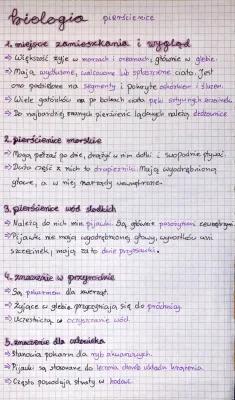 biologia pierścienice
1. miejsce zamieszkania i wygląd
⇒ Większość żyje w morzach i oceanach, głównie w glebie.
⇒ Mają wydłużone, walcowate lub spłaszczone ciało. Jest
ono podzielone na segmenty i pokryte oskórkiem i śluzem.
⇒ Wiele gatunków ma po bokach ciała pęki sztywnych szczecinek.
⇒ Do najbardziej znanych pierścienic lądowych należą dżdżownice
2. pierścienice morskie
⇒ Mogą pełzać po dnie, drążyć w nim dołki i swobodnie pływać.
⇒ Duża część z nich to drapieżniki. Mają wyodrębnioną
głowę, a w niej narządy wewnętrzne.
3. pierścienice wód słodkich
⇒ Należą do nich min. pijawki. Są głównie pasożytami zewnętrznymi
⇒ Pijawki nie mają wyodrębnionej głowy, wyrostków ani
szczecinek, mają za to dwie przyssawki.
4. znaczenie w przyrodzie
⇒ Są pokarmem dla zwierząt.
⇒ Żyjące w glebie przyczyniają się do próchnicy.
⇒ Uczestniczą w oczyszczaniu wód.
5. znaczenie dla człowieka
⇒ Stanowią pokarm dla ryb akwariowych.
⇒ Pijawki są stosowane do leczenia chorób układu krążenia.
⇒ Często powodują straty w hodowli.